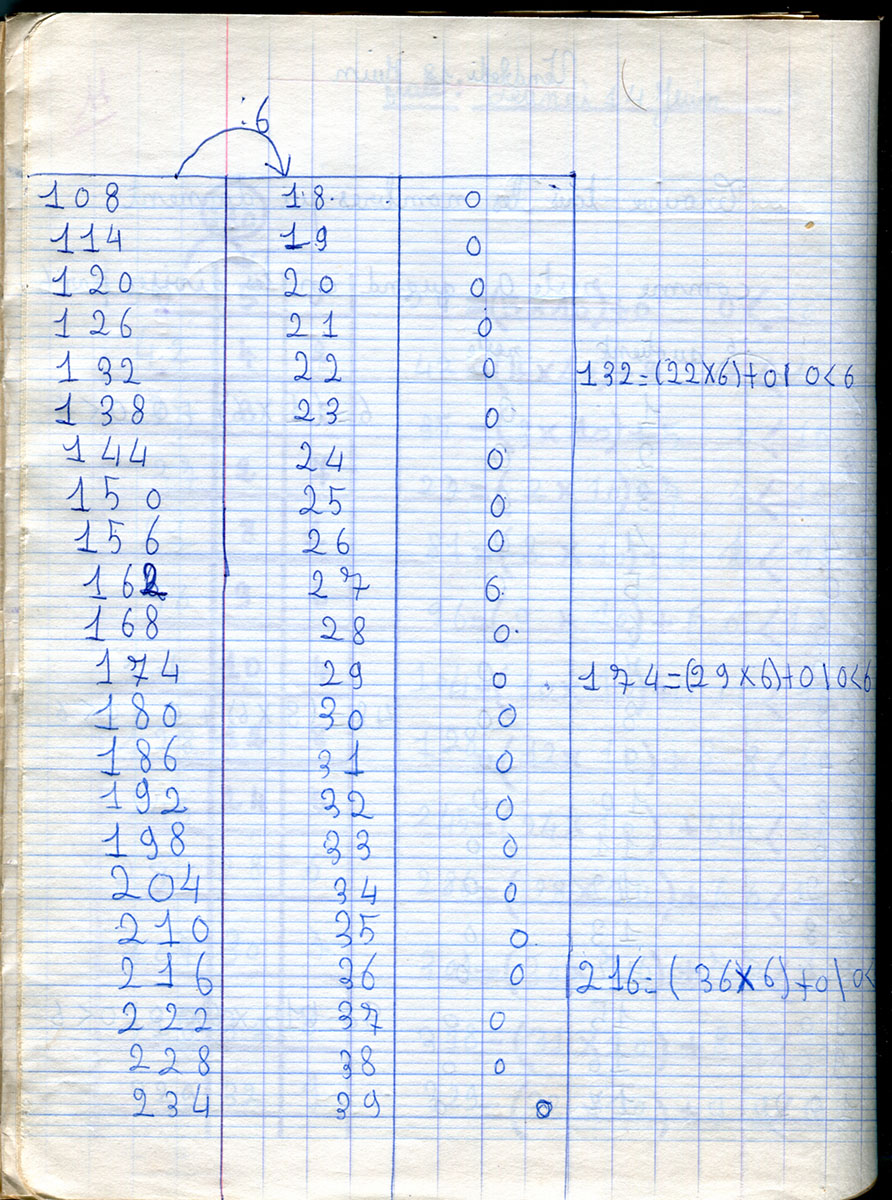 :6
108 18. 0
114 19 0
120 20 0
126 21 0
132 22 0 132=(22x6)+0/ 0<6
138 23 0
144 24 0
150 25 0
156 26 0
162 27 6
168 28 0
174 29 0 174=(29x6)+0/0<6
180 30 0
186 31 0
192 32 0
198 33 0
204 34 0
210 35 0
216 36 0 216=(36x6)+0/0<
222 37 0
228 38 0
234 39 0